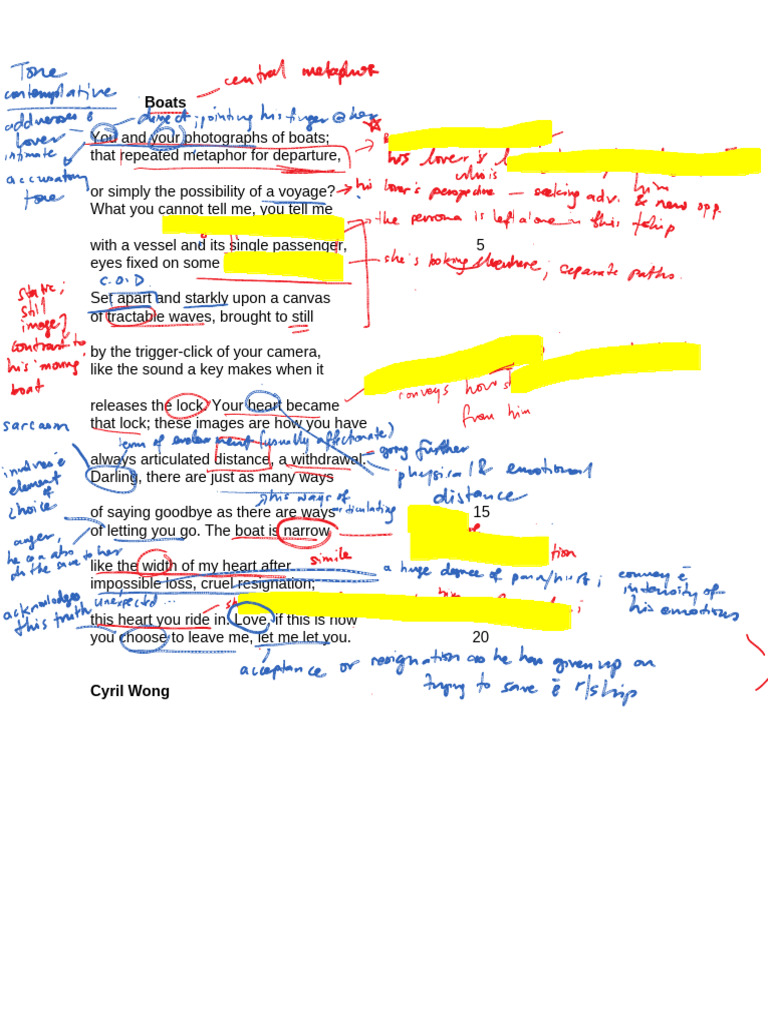 Tone
contemplative
central metaphor
Boats
addresses
lover
intimate
accusatory
tone
direct; pointing his finger @ her
You and your photographs of boats;
that repeated metaphor for departure,
his lover is
who is
him
or simply the possibility of a voyage?
his lover's perspective — seeking adv. & new opp.
What you cannot tell me, you tell me
the persona is left alone in this r/ship
with a vessel and its single passenger,
5
eyes fixed on some
she's looking elsewhere; separate paths.
C.O.D
Set apart and starkly upon a canvas
of tractable waves, brought to still
static;
still
image;
contrast to
his moving
boat
by the trigger-click of your camera,
like the sound a key makes when it
conveys how
from him
releases the lock. Your heart became
that lock; these images are how you have
sarcasm
term of endearment (usually affectionate)
always articulated distance, a withdrawal.
going further
Darling, there are just as many ways
physical & emotional
distance
involves
element
of
choice
his ways of
articulating
of saying goodbye as there are ways
15
of letting you go. The boat is narrow
anger,
he can also
do the same to her
simile
like the width of my heart after
a huge degree of pain/hurt; convey
intensity of
his emotions
impossible loss, cruel resignation;
acknowledges
this truth
unexpected ...
this heart you ride in. Love, if this is how
you choose to leave me, let me let you.
20
acceptance or resignation as he has given up on
trying to save r/ship
Cyril Wong